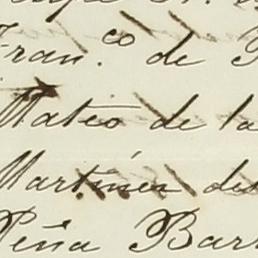 Fran.co de
Mateo de la
Martínez des
Peña Bar